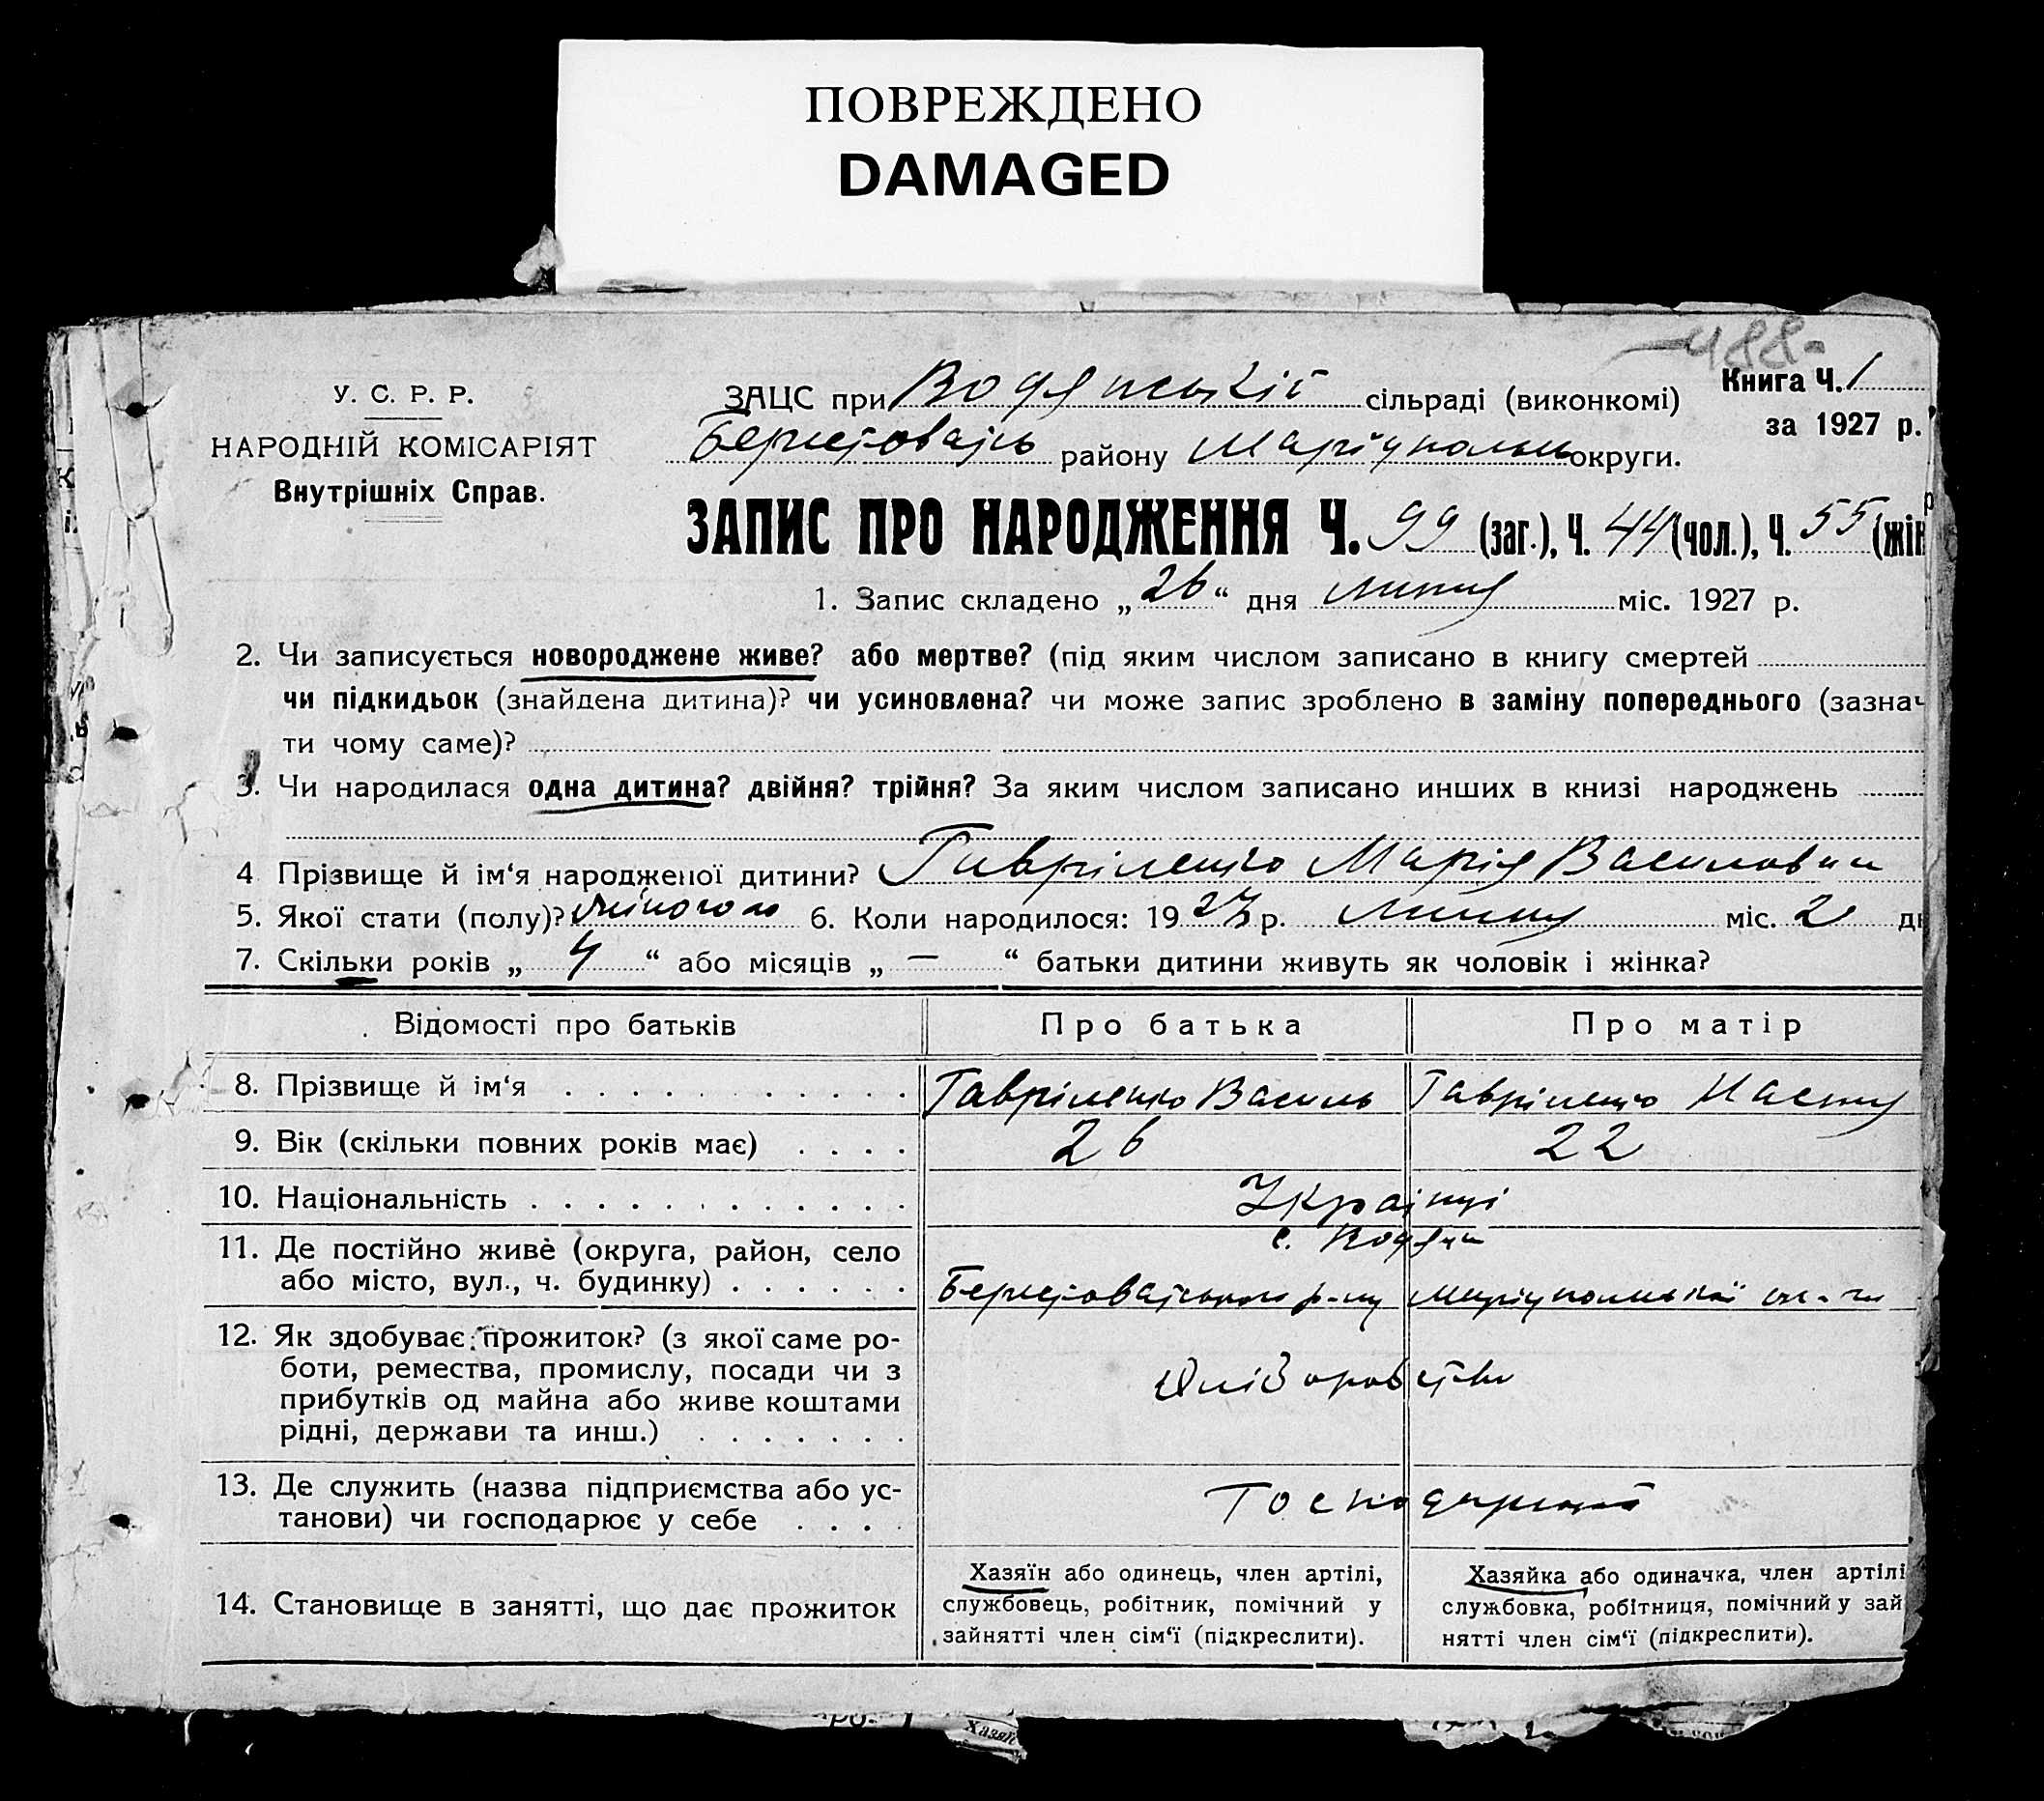 ПОВРЕЖДЕНО
DAMAGED
488
У. С. Р. Р.
НАРОДНІЙ КОМІСАРІЯТ
Внутрішніх Справ.
ЗАЦС при Водянській сільраді (виконкомі)
Книга Ч. 1
за 1927 р.
району округи.
ЗАПИС ПРО НАРОДЖЕННЯ Ч. 99 (заг.), Ч. 44 (чол.), Ч. 55 (жін
1. Запис складено „26“ дня липня міс. 1927 р.
2. Чи записується новороджене живе? або мертве? (під яким числом записано в книгу смертей
чи підкидьок (знайдена дитина)? чи усиновлена? чи може запис зроблено в заміну попереднього (зазнач
ти чому саме)?
3. Чи народилася одна дитина? двійня? трійня? За яким числом записано инших в книзі народжень
4 Прізвище й ім‘я народженої дитини? Гавріленко Марія Василовна
5. Якої стати (полу)? жіночого 6. Коли народилося: 1927 р. липня міс. 21 дн
7. Скільки років „4“ або місяців „—“ батьки дитини живуть як чоловік і жінка?
Відомості про батьків Про батька Про матір
8. Прізвище й ім‘я Гавріленко Василь Гавріленко Настя
9. Вік (скільки повних років має) 26 22
10. Національність Українці
11. Де постійно живе (округа, район, село с. Водяна
або місто, вул., ч. будинку) р-ну Маріупольської
12. Як здобуває прожиток? (з якої саме ро-
боти, ремества, промислу, посади чи з
прибутків од майна або живе коштами
рідні, держави та инш.)
Хліборобство
13. Де служить (назва підприємства або ус-
танови) чи господарює у себе
14. Становище в занятті, що дає прожиток
Хазяїн або одинець, член артілі,
службовець, робітник, помічний у
зайнятті член сім‘ї (підкреслити).
Хазяйка або одиначка, член артілі
службовка, робітниця, помічний у зай
нятті член сім‘ї (підкреслити).
Хазяїн